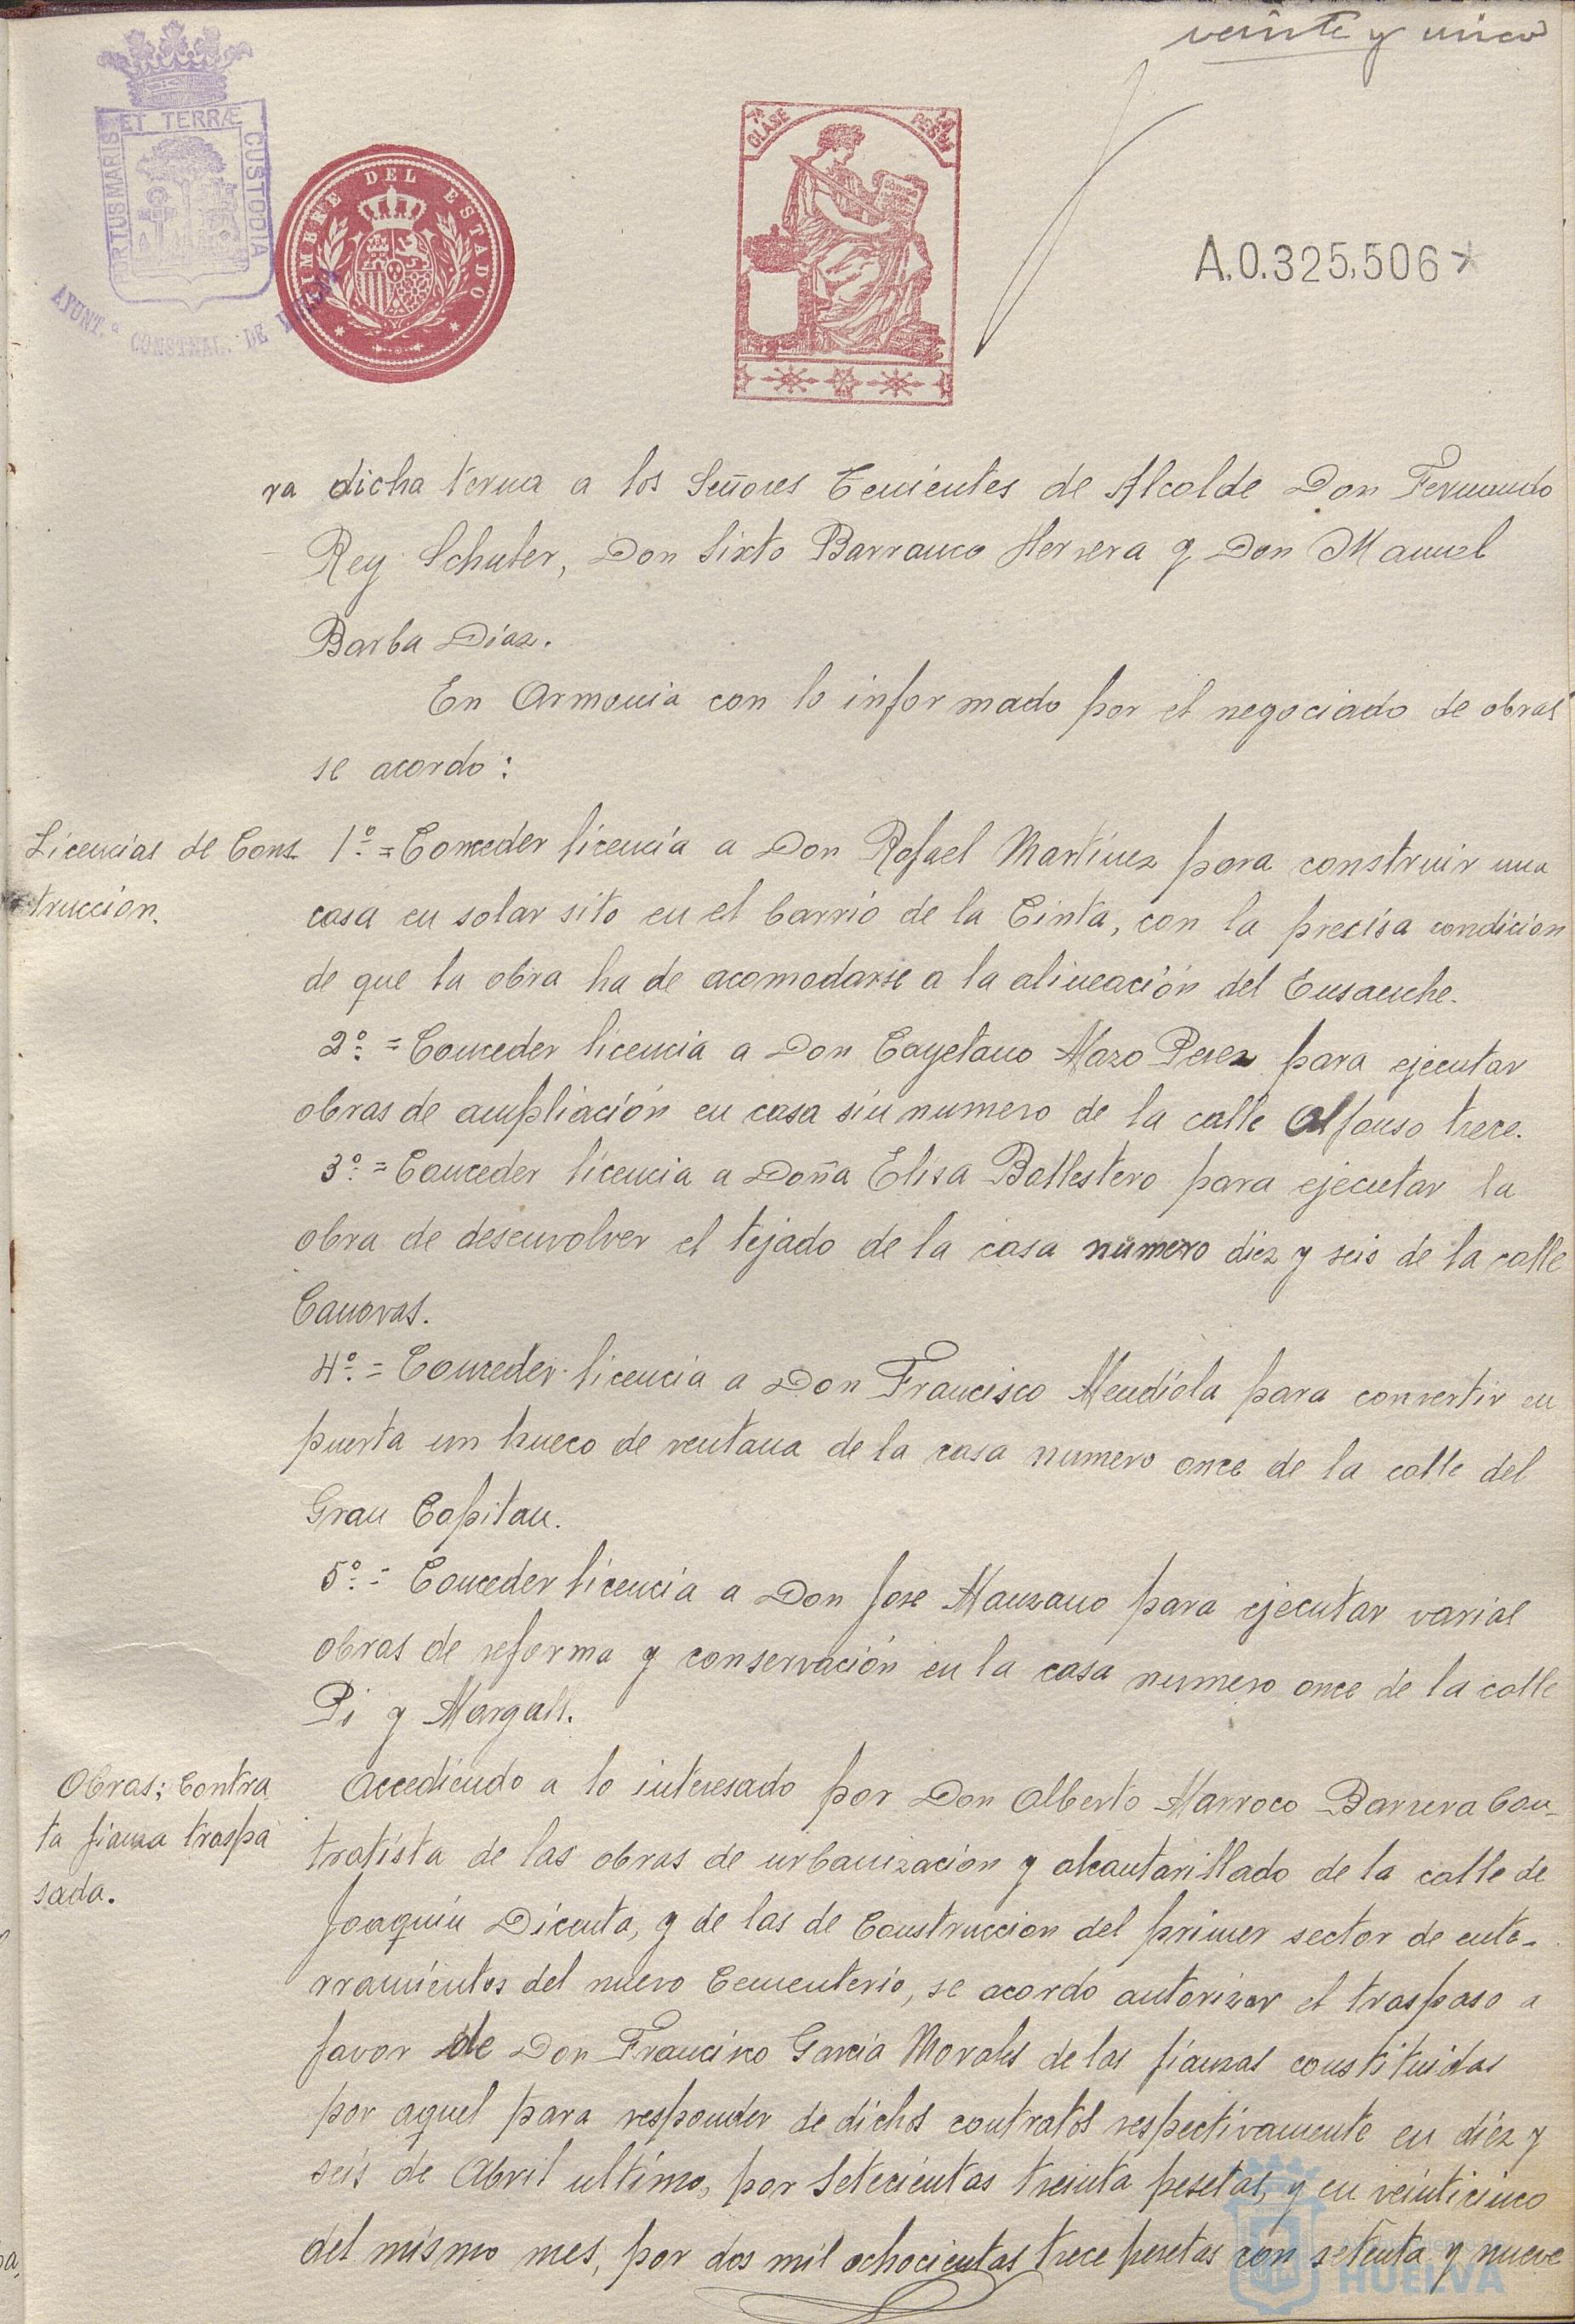 veinte y cinco
PORTUS MARIS ET TERRÆ CUSTODIA
AYUNT.º CONSTNAL. DE HUELVA
TIMBRE DEL ESTADO
7ª CLASE
A.0.325,506*
ra dicha terna a los Señores Tenientes de Alcalde Don Fernando
Rey Schuter, Don Sixto Barranco Herrera y Don Manuel
Barba Diaz.
En Armonia con lo informado por el negociado de obras
se acordo:
Licencias de Cons
trucción.
1º = Conceder licencia a Don Rafael Martinez para construir una
casa en solar sito en el barrio de la Cinta, con la precisa condicion
de que la obra ha de acomodarse a la alineación del Ensanche.
2º = Conceder licencia a Don Cayetano Mazo Perez para ejecutar
obras de ampliación en casa sin numero de la calle Alfonso trece.
3º = Conceder licencia a Doña Elisa Ballestero para ejecutar la
obra de desenvolver el tejado de la casa numero diez y seis de la calle
Canovas.
4º = Conceder licencia a Don Francisco Mendiola para convertir en
puerta un hueco de ventana de la casa numero once de la calle del
Gran Capitan.
5º = Conceder licencia a Don Jose Manzano para ejecutar varias
obras de reforma y conservación en la casa numero once de la calle
Pi y Margall.
Obras: Contra
ta fianza traspa
sada.
Accediendo a lo interesado por Don Alberto Marroco Barrera Con-
tratista de las obras de urbanización y alcantarillado de la calle de
Joaquin Dicenta, y de las de Construccion del primer sector de ente-
rramientos del nuevo Cementerio, se acordo autorizar el traspaso a
favor de Don Francisco Garcia Morales de las fianzas constituidas
por aquel para responder de dichos contratos respectivamente en diez y
seis de Abril ultimo, por Setecientas treinta pesetas, y en veinticinco
del mismo mes, por dos mil ochocientas trece pesetas con setenta y nueve
HUELVA